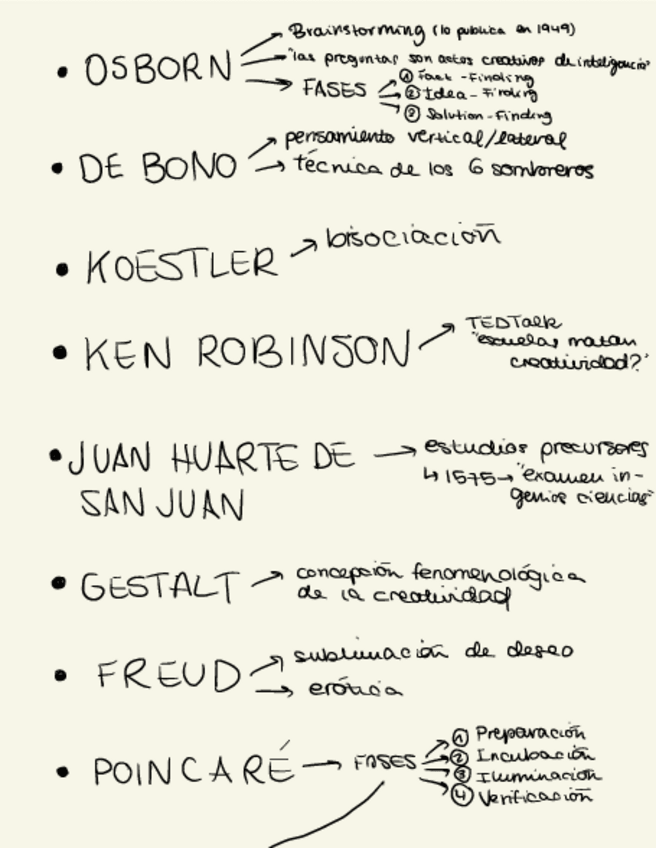 Brainstorming (lo publica en 1949)
• OSBORN
"las preguntas son actos creativos de inteligencia"
FASES
① Fact-Finding
② Idea-Finding
③ Solution-Finding
pensamiento vertical/lateral
• DE BONO
técnica de los 6 sombreros
bisociación
• KOESTLER
TEDTalk
• KEN ROBINSON
"escuelas matan
creatividad?"
• JUAN HUARTE DE
SAN JUAN
estudios precursores
↳ 1575 → "examen in-
genios ciencias"
• GESTALT
concepción fenomenológica
de la creatividad
• FREUD
sublimación de deseo
erótica
• POINCARÉ
FASES
① Preparación
② Incubación
③ Iluminación
④ Verificación